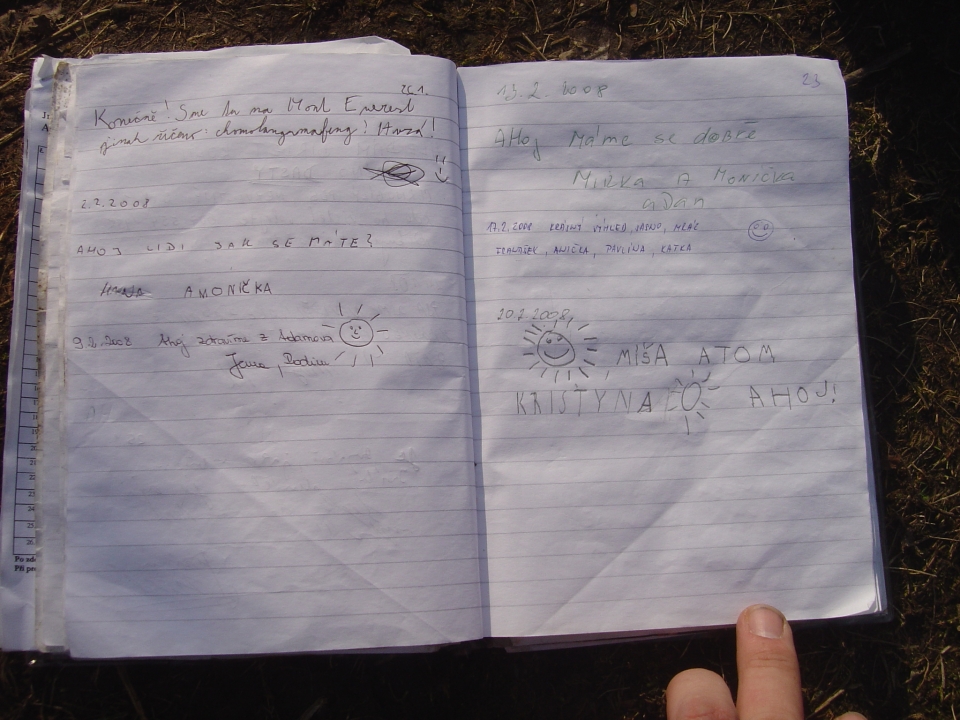 25.1.
Konečně! Sme tu na Mont Everest
jinak řečeno: chomolangmafeng! Hurá!
2.2.2008
AHOJ LIDI JAK SE MÁTE?
AMONIČKA
9.2.2008 Ahoj zdravíme z Adamova
Jana, Radim
23
13.2.2008
AHoj Máme se dobře
MIRKA A MONIČKA
aDan
17.2.2008 KRÁSNÝ VÝHLED, JASNO, MRÁZ
FRANTIŠEK, ANIČKA, PAVLÍNA, KATKA
20.2.2008
MIŠA ATOM
KRISTÝNA AHOJ!
Po
Při